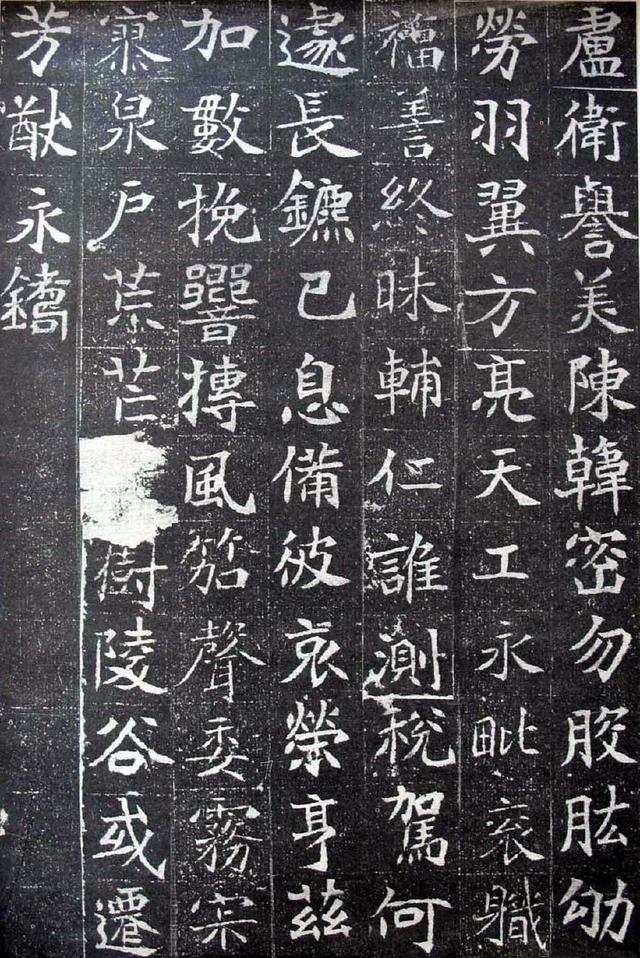 盧衛譽美陳韓密勿股肱劬
勞羽翼方亮天工永毗衮職
福善終昧輔仁誰測稅駕何
遽長鑣已息備彼哀榮亨茲
加數挽響摶風笳聲委霧
寡泉戶荒芒樹陵谷或遷
芳猷永鐫